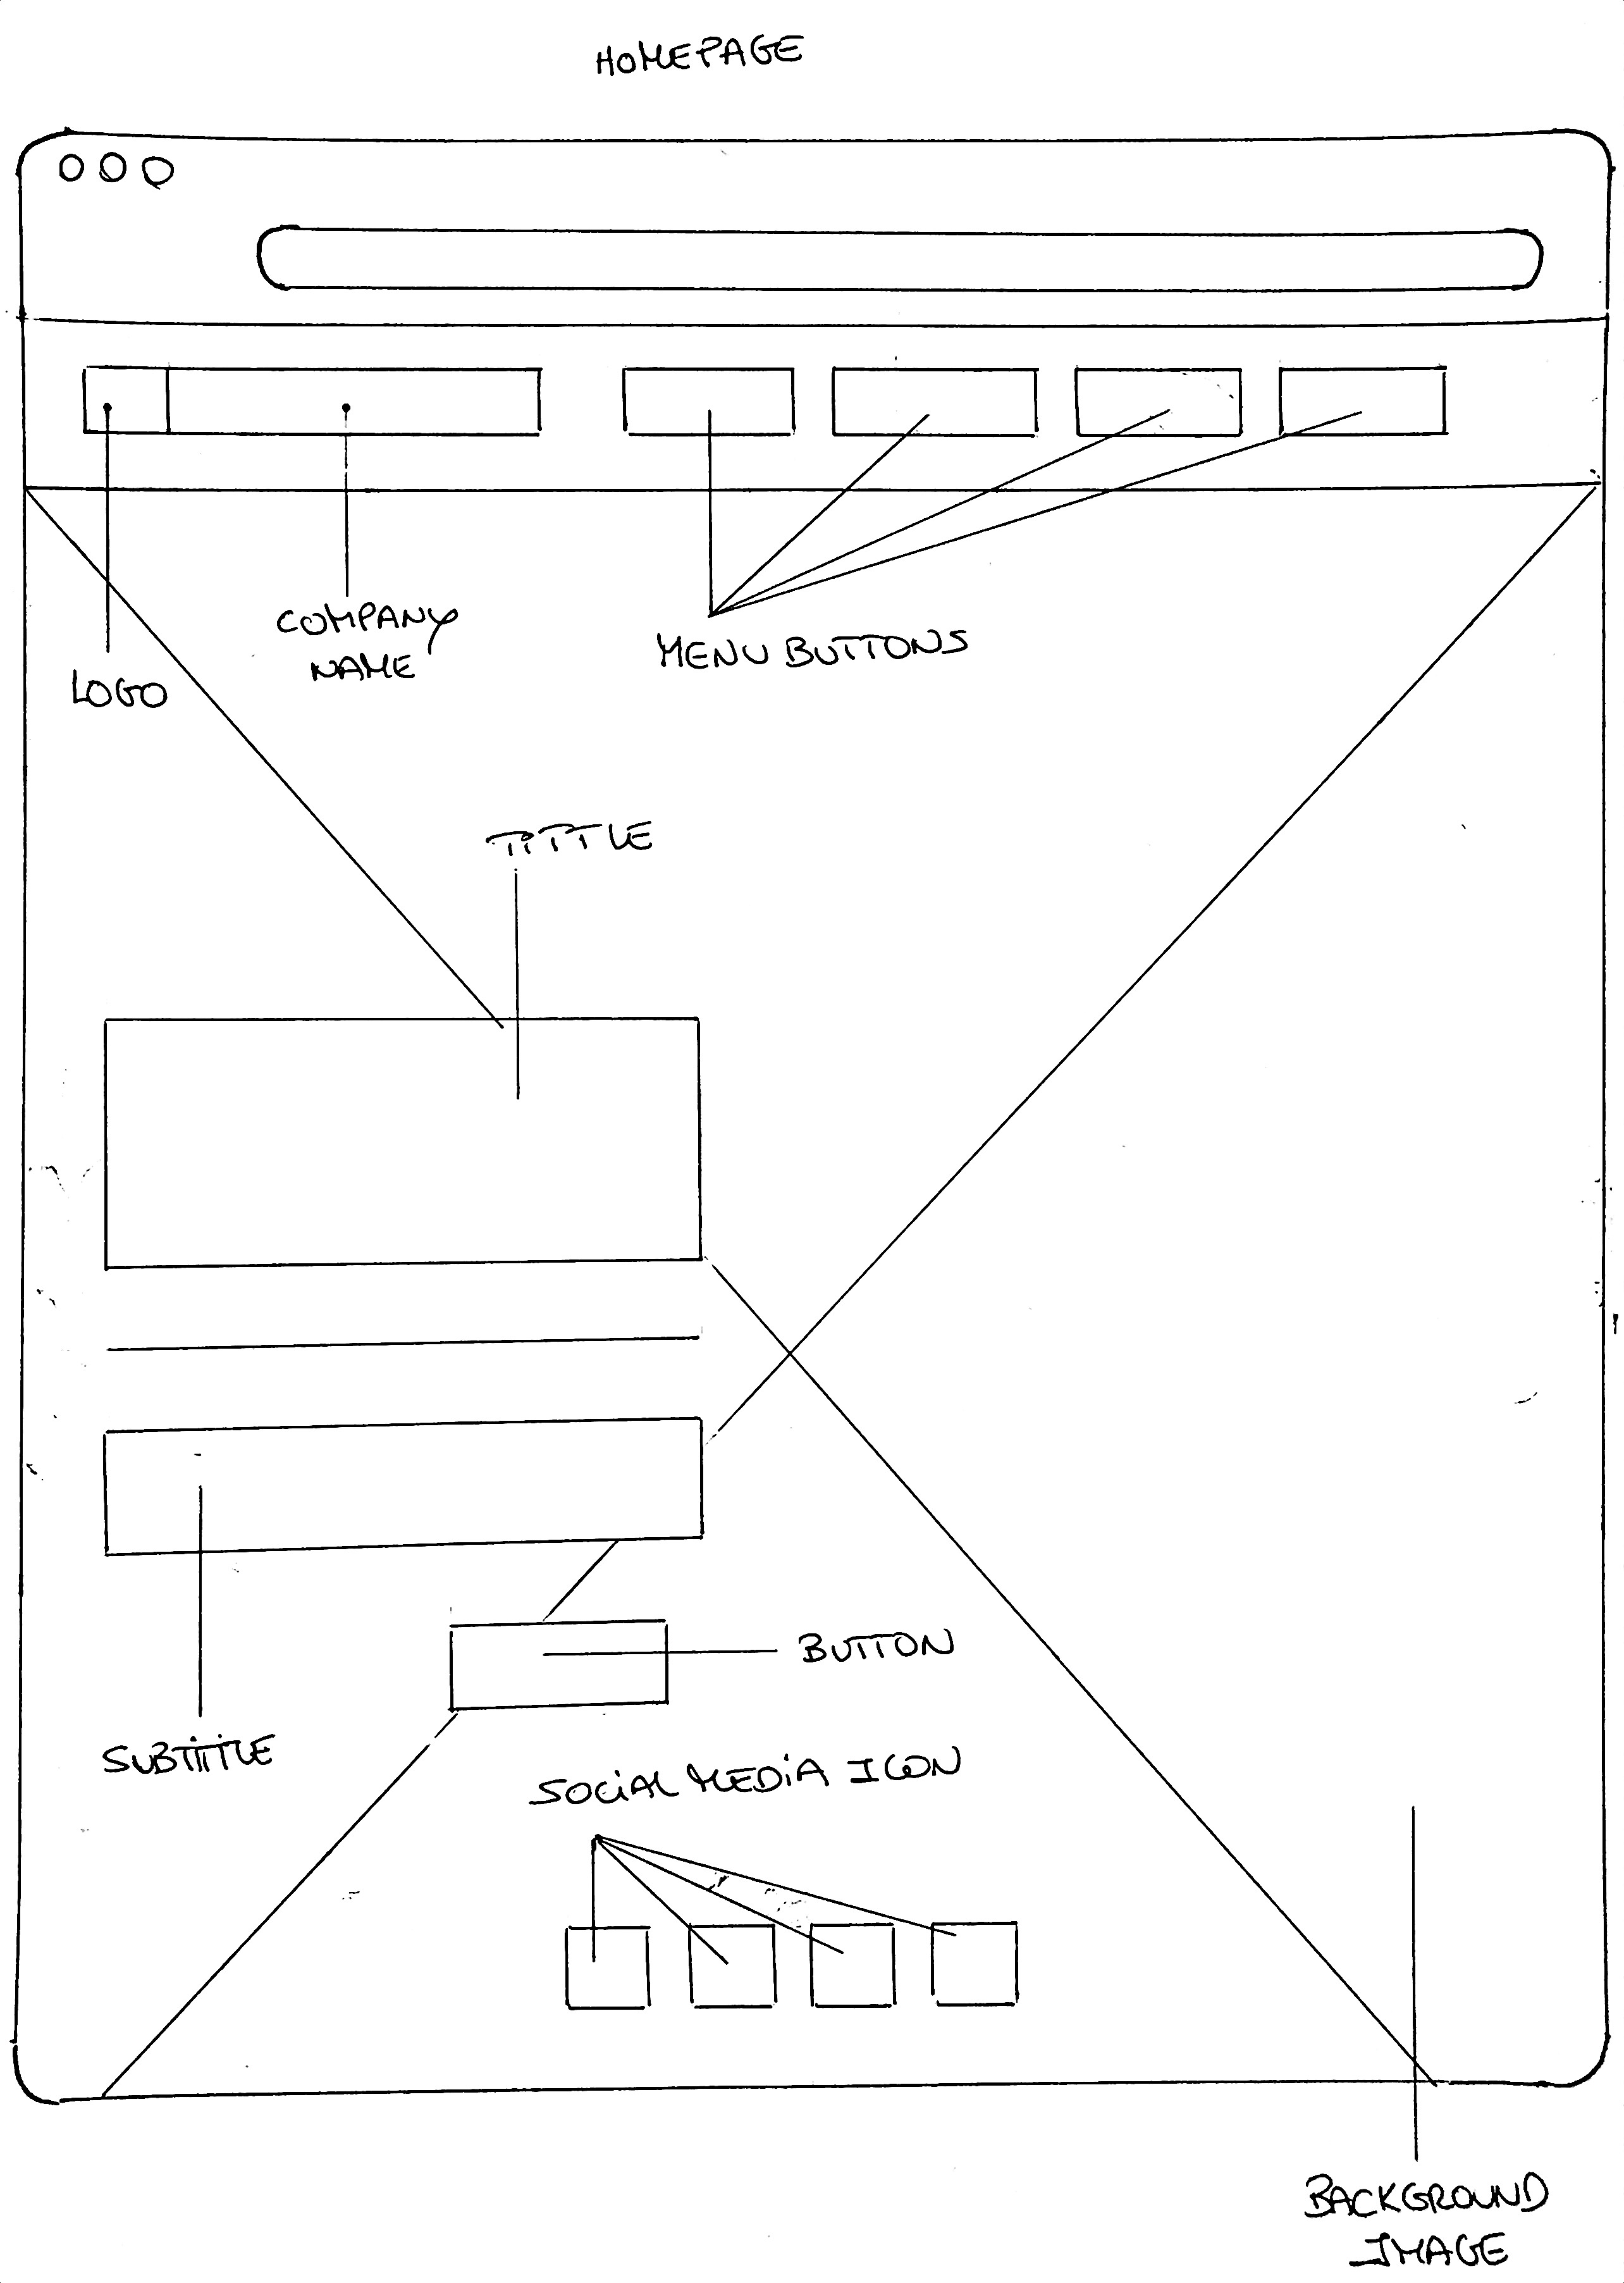 HOMEPAGE
COMPANY
NAME
LOGO
MENU BUTTONS
TITTLE
BUTTON
SUBTITLE
SOCIAL MEDIA ICON
BACKGROUND
IMAGE